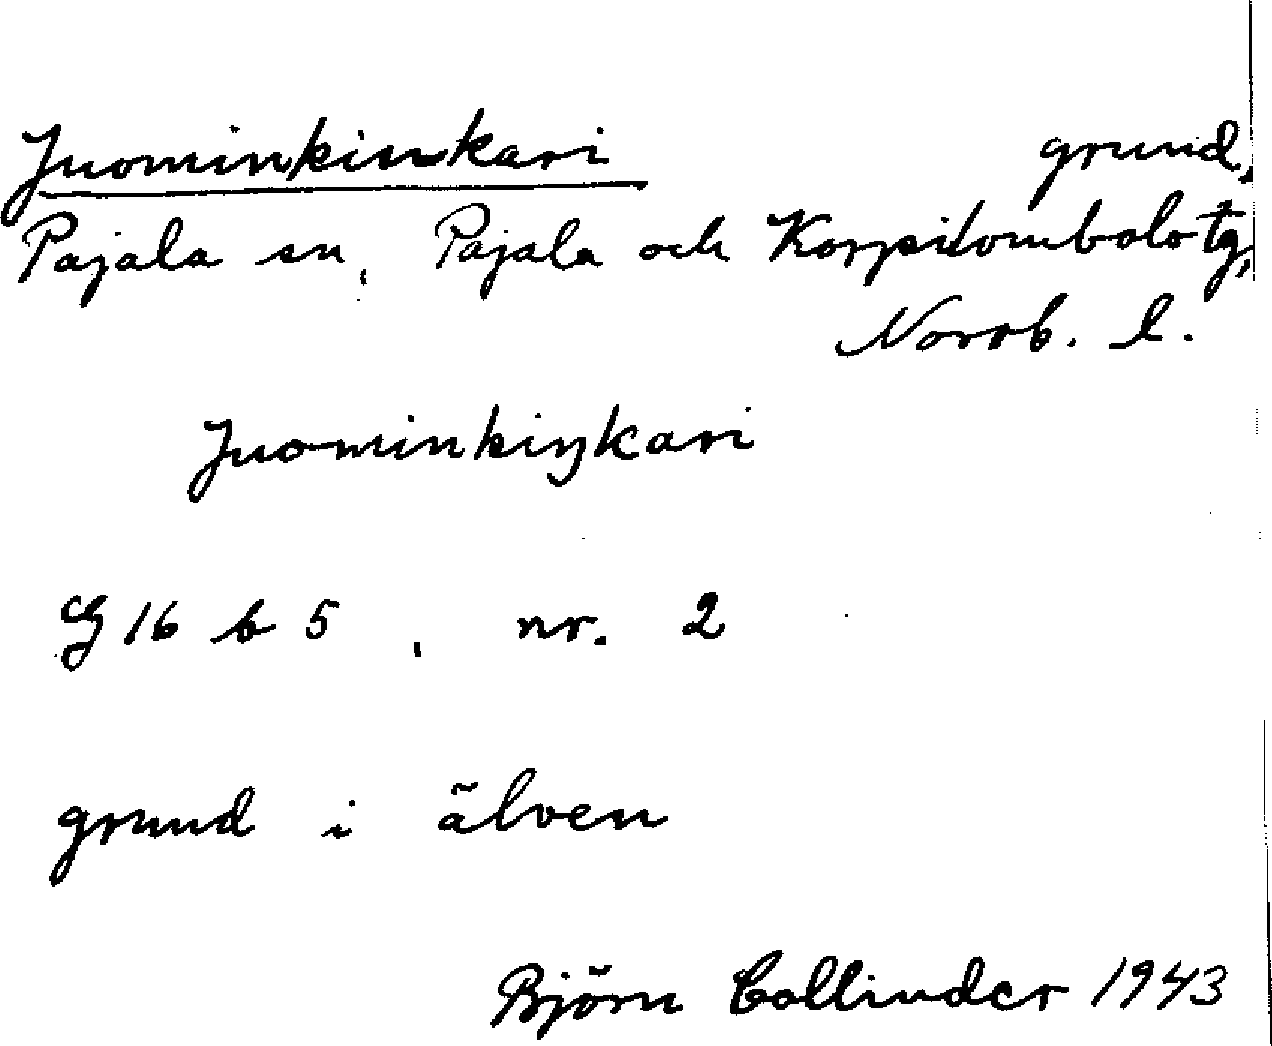 Juominkinkari grund,
Pajala sn, Pajala och Korpilombolo tg,
Norrb. l.
Juominkiŋkari
G 16 b 5, nr. 2
grund i älven
Björn Collinder 1943